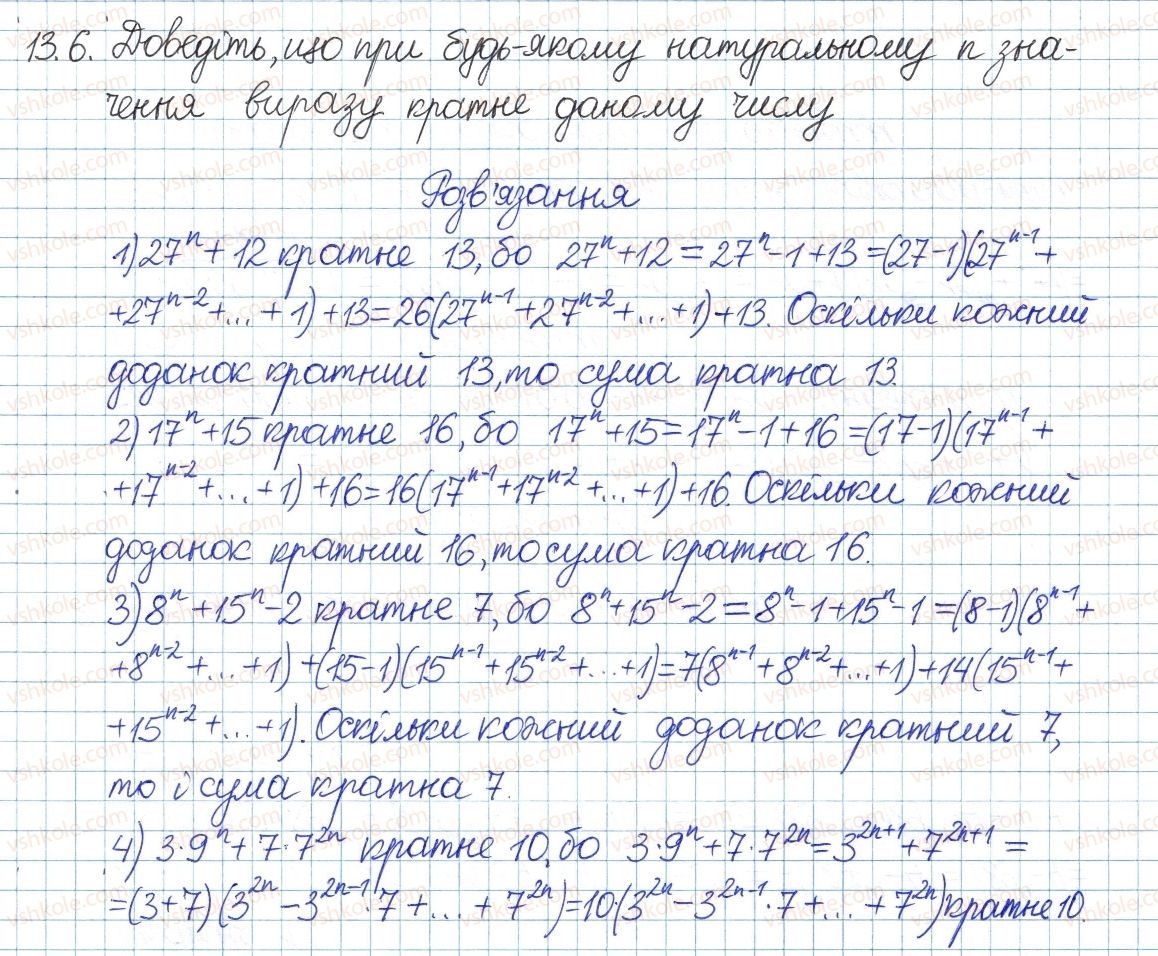 13.6. Доведіть, що при будь-якому натуральному n зна-
чення виразу кратне даному числу
Розв'язання
1) 27^n + 12 кратне 13, бо 27^n + 12 = 27^n - 1 + 13 = (27 - 1)(27^{n-1} +
+ 27^{n-2} + ... + 1) + 13 = 26(27^{n-1} + 27^{n-2} + ... + 1) + 13. Оскільки кожний
доданок кратний 13, то сума кратна 13.
2) 17^n + 15 кратне 16, бо 17^n + 15 = 17^n - 1 + 16 = (17 - 1)(17^{n-1} +
+ 17^{n-2} + ... + 1) + 16 = 16(17^{n-1} + 17^{n-2} + ... + 1) + 16. Оскільки кожний
доданок кратний 16, то сума кратна 16.
3) 8^n + 15^n - 2 кратне 7, бо 8^n + 15^n - 2 = 8^n - 1 + 15^n - 1 = (8 - 1)(8^{n-1} +
+ 8^{n-2} + ... + 1) + (15 - 1)(15^{n-1} + 15^{n-2} + ... + 1) = 7(8^{n-1} + 8^{n-2} + ... + 1) + 14(15^{n-1} +
+ 15^{n-2} + ... + 1). Оскільки кожний доданок кратний 7,
то і сума кратна 7.
4) 3·9^n + 7·7^{2n} кратне 10, бо 3·9^n + 7·7^{2n} = 3^{2n+1} + 7^{2n+1} =
= (3 + 7)(3^{2n} - 3^{2n-1}·7 + ... + 7^{2n}) = 10·(3^{2n} - 3^{2n-1}·7 + ... + 7^{2n}) кратне 10.